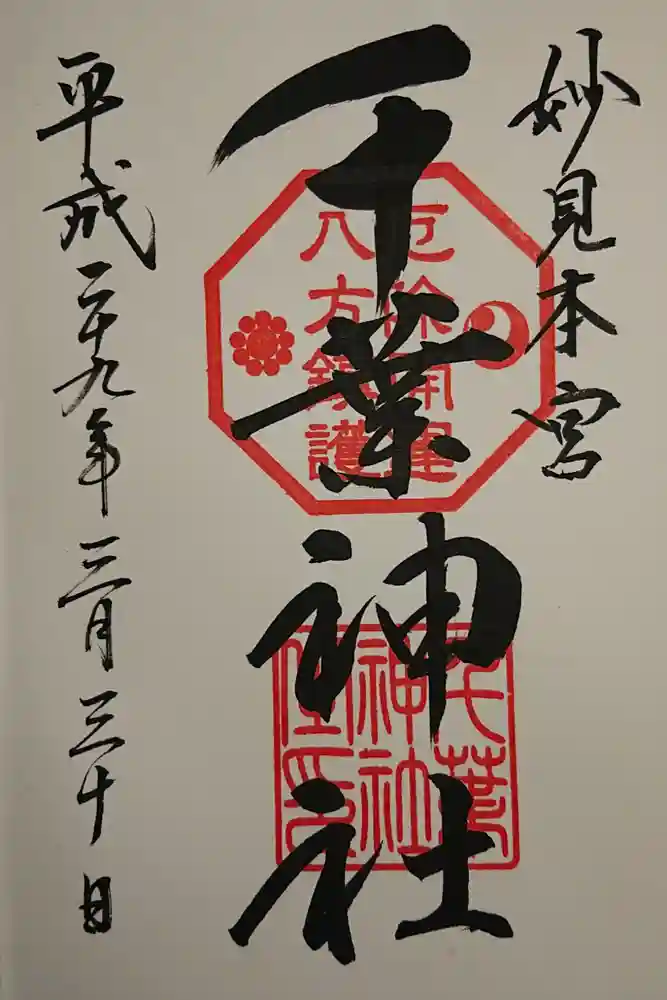 妙見本宮
千葉神社
厄除開運
八方鎮護
千葉
神社
平成二十九年三月三十日